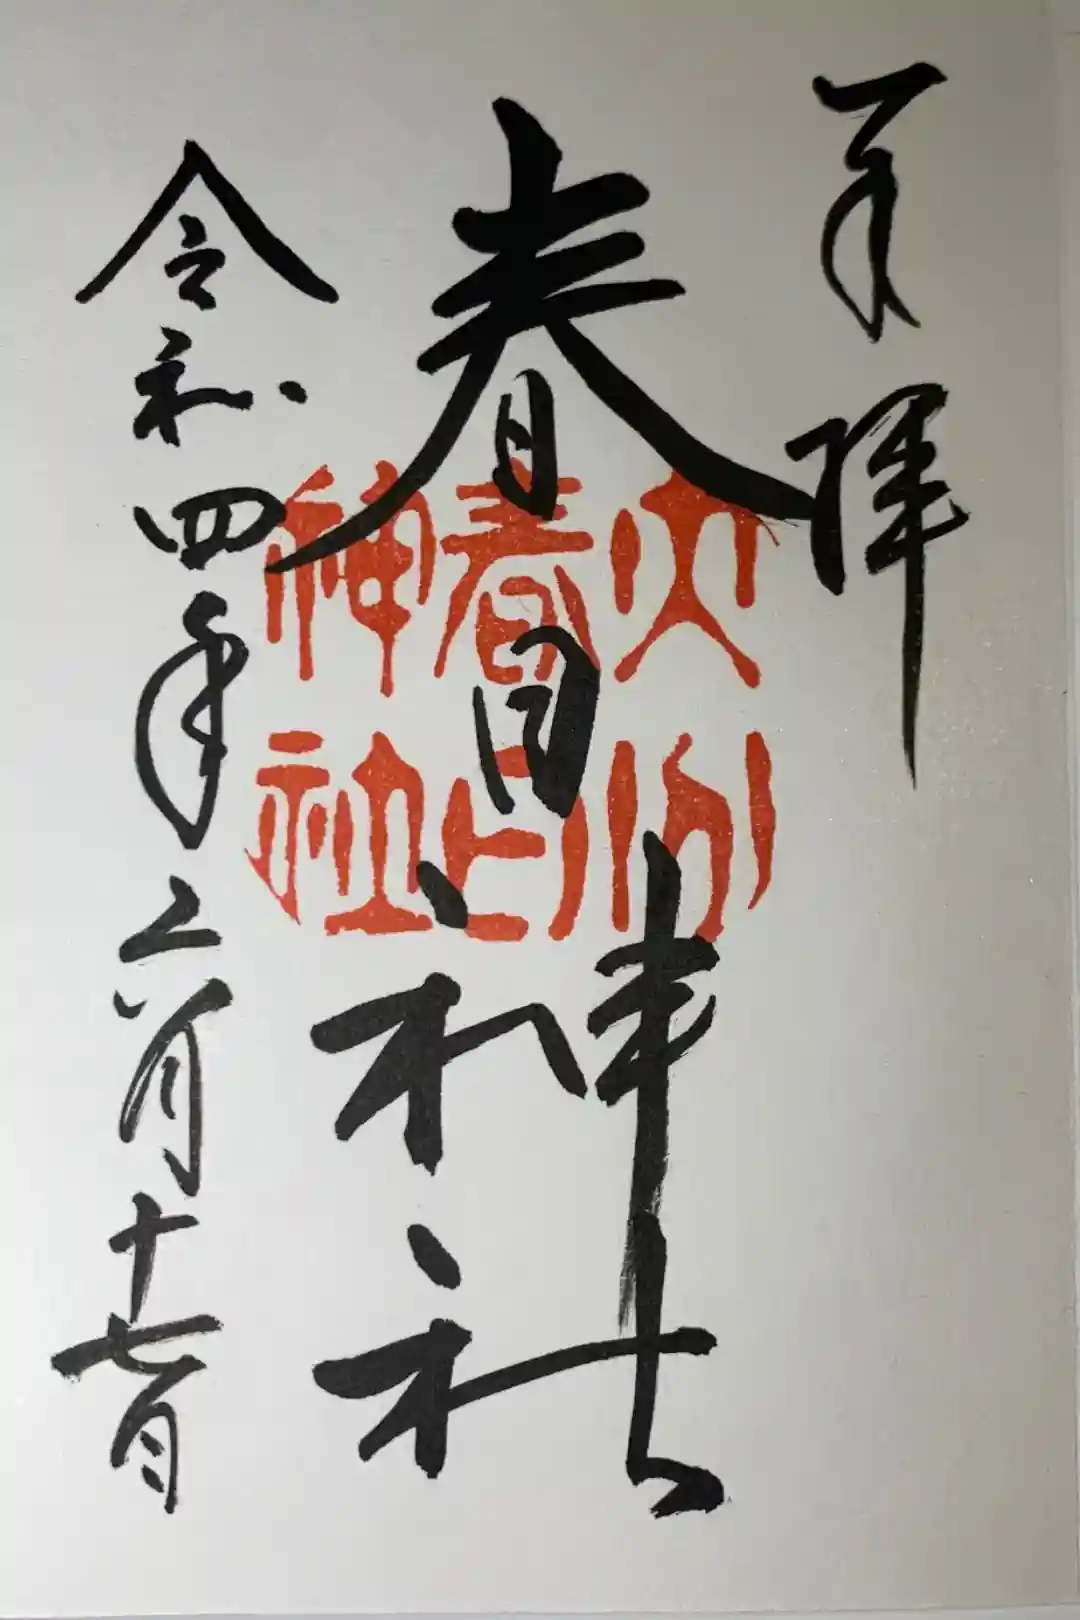 奉拝
春日神社
令和四年六月十七日
大分
春日
神社